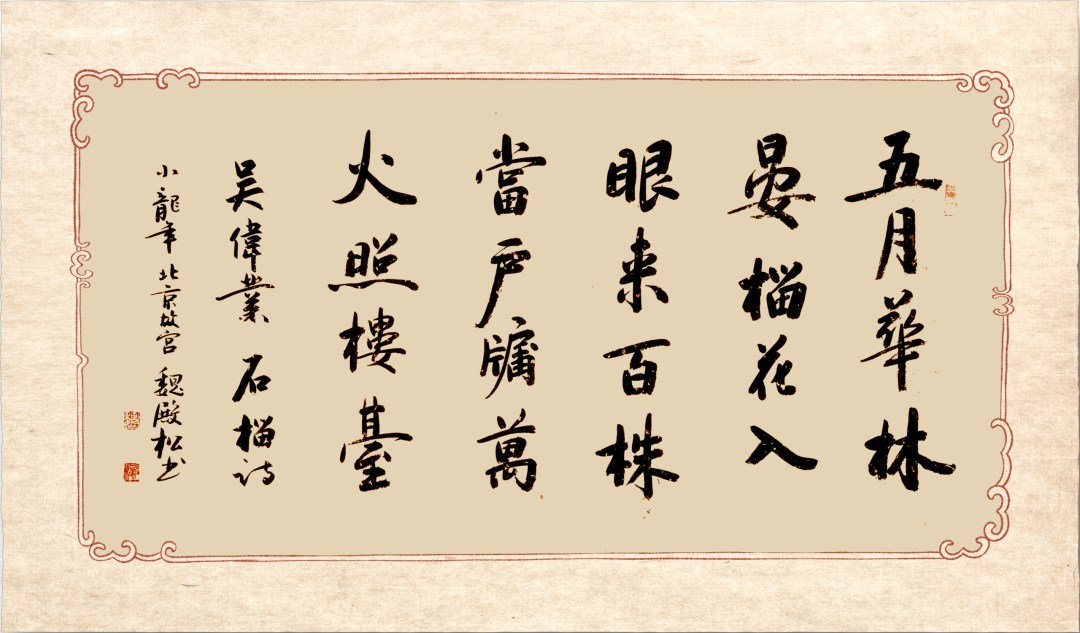 五月華林
晏榴花入
眼来百株
當戶牖萬
火照樓臺
吴偉業 石榴诗
小龍年 北京故宫 魏殿松书